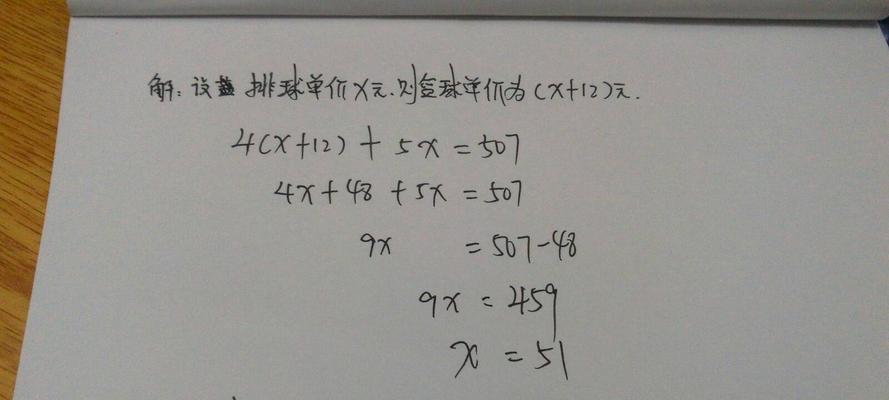 解：设排球单价x元.则篮球单价为(x+12)元.
4(x+12)+5x=507
4x+48+5x=507
9x =507-48
9x=459
x=51